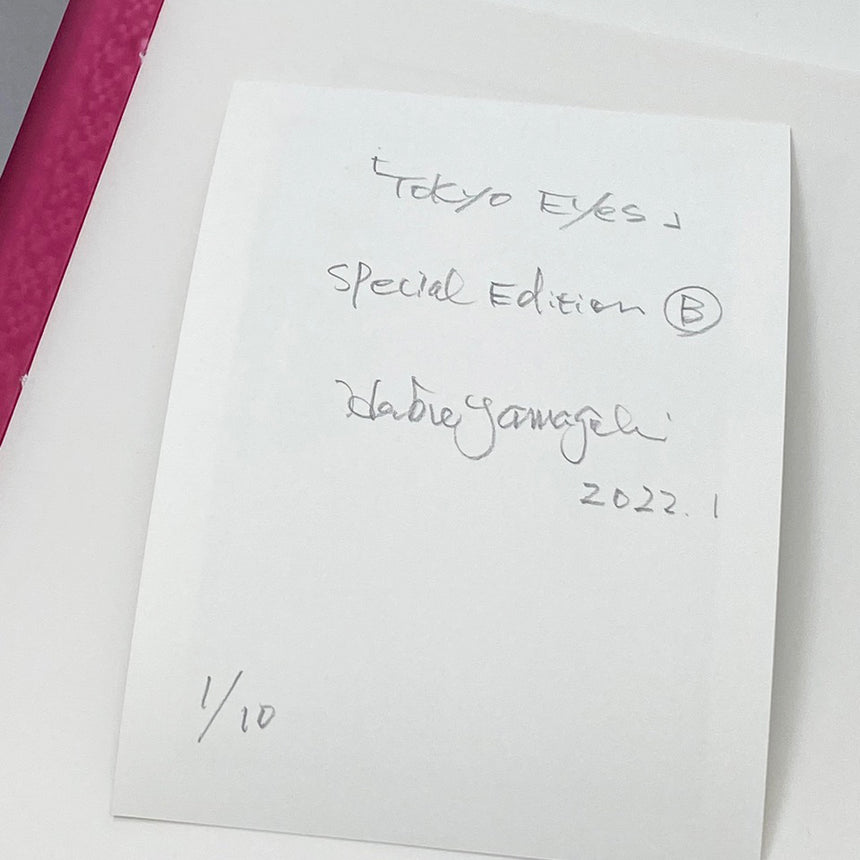 「Tokyo Eyes」
Special Edition Ⓑ
Herbie Yamaguchi
2022.1
1/10